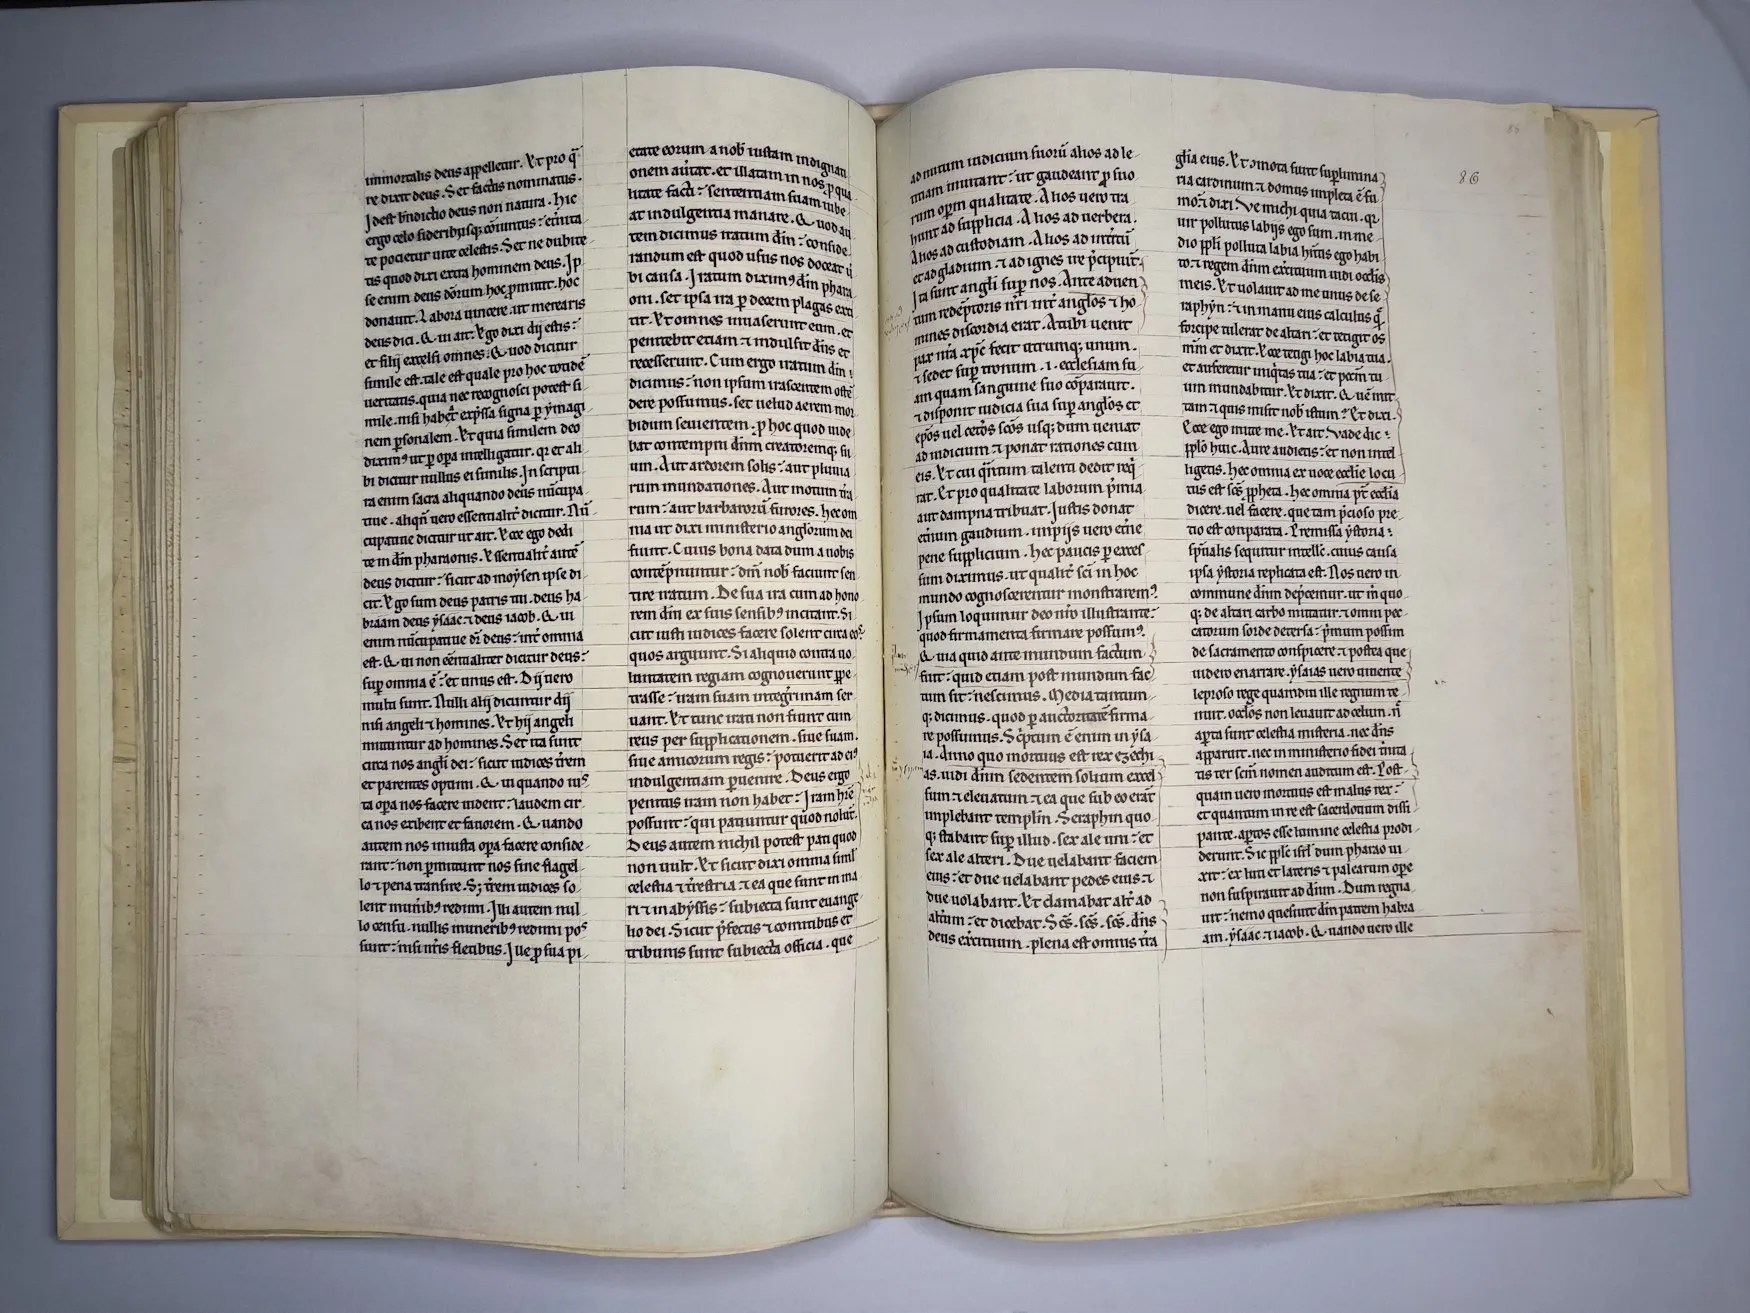 immortalis deus appelletur. Et pro q̄
re dixit deus. Set factus nominatus.
Idest bn̄dictio deus non natura. hic
ergo celo sideribusq; cōiunctus: et̄nita
te pocietur uite celestis. Set ne dubite
tis quod dixi extra hominem deus. Ip
se enim deus dōrum hoc p̱mittit. hoc
donauit. Labora uincere. ut merearis
deus dici. Qui ait. Ego dixi dij estis:
et filij excelsi omnes. Quod dicitur
simile est. tale est quale pro hoc totidē
ueritatis. quia nec recognosci potest si
mile. nisi habet exp̄ssa signa ꝑ ymagi
nem ꝑsonalem. Et quia similem deo
dixim⁹ ut ꝑ oꝑa intelligatur. qr et ali
bi dicitur nullus ei similis. In scriptu
ra enim sacra aliquando deus nūcupa
tiue. aliqn̄ uero essentialit̄ dicitur. Nū
cupatiue dicitur ut ait. Ecce ego dedi
te in dm̄ pharaonis. Essentialit̄ autē
deus dicitur: sicut ad moysen ipse di
cit. Ego sum deus patris tui. deus ha
braam deus ysaac ⁊ deus iacob. Qui
enim nūcupatiue dr̄ deus: int̄ omnia
est. Qui non cēntialiter dicitur deus:
suꝑ omnia ē: et unus est. Dij uero
multi sunt. Nulli alij dicuntur dij
nisi angeli ⁊ homines. Et hij angeli
mittuntur ad homines. Set ita sunt
circa nos angli dei: sicut iudices t̄rem
et parentes optimi. Qui quando ius
ta oꝑa nos facere uident: laudem cir
ca nos exibent et fauorem. Quando
autem nos iniusta oꝑa facere conside
rant: non ꝑmittunt nos sine flagel
lo ⁊ pena transire. S; t̄rem iudices so
lent munib⁹ redimi. Illi autem nul
lo censu. nullis munerib⁹ redimi pos
sunt: nisi nr̄is fletibus. Ii ue ꝓ sua pi
etate eorum a nob̄ iustam indignati
onem aūtat. et illatam in nos ꝓ qua
litate facti: sententiam suam iube
at indulgentia manare. Quod au
tem dicimus iratum dm̄: conside
randum est quod usus nos doceat u
bi causa. Iratum dixim⁹ dm̄ phara
oni. set ipsa ira ꝑ decem plagas exti
tit. Et omnes inuaserunt eum. et
penitebit etiam ⁊ indulsit dn̄s et
recesserunt. Cum ergo iratum dm̄
dicimus: non ipsum irascentem ostē
dere possumus. set uelud aerem mor
bidum seuientem. ꝑ hoc quod uide
bat contempni dm̄ creatoremq; su
um. Aut ardorem solis: aut pluuia
rum inundationes. Aut motum t̄ra
rum: aut barbarorū furores. hec om
nia ut dixi ministerio anglorum dei
fiunt. Cuius bona data dum a nobis
contēpnuntur: dm̄ nob̄ faciunt sen
tire iratum. De sua ira cum ad hono
rem dm̄ ex suis sensib⁹ incitant. Si
cut iusti iudices facere solent circa eos
quos arguunt. Si aliquid contra uo
luntatem regiam cognouerunt ꝑpe
trasse: iram suam integrimam ser
uant. Et tunc irati non fiunt cum
reus per supplicationem. siue suam.
siue amicorum regis: potuerit ad ei⁹
indulgentiam ꝑuenire. Deus ergo
penitus iram non habet: Iram hn̄t
possunt: qui patiuntur quod nolunt.
Deus autem nichil potest pati quod
non uult. Et sicut dixi omnia simī
celestia ⁊ t̄restria ⁊ ea que sunt in ma
ri ⁊ in abyssis: subiecta sunt euange
lio dei. Sicut p̄fectis ⁊ comitibus et
tribunis sunt subiecta officia. que
ad nutum iudicium suorū alios ad le
titiam inuitant: ut gaudeant ꝓ suo
rum oꝑm qualitate. Alios uero tra
hunt ad supplicia. Alios ad uerbera.
Alios ad custodiam. Alios ad int̄itū
et ad gladium. ⁊ ad ignes ire p̄cipiunt.
Ita sunt angli suꝑ nos. Ante aduen
tum redēptoris nr̄i int̄ anglos ⁊ ho
mines discordia erat. At ubi uenit
pax nr̄a xp̄c fecit utrumq; unum.
⁊ sedet suꝑ tronum .i. ecclesiam su
am quam sanguine suo cōparauit.
⁊ disponit iudicia sua suꝑ anglos et
ep̄os uel cetōs sc̄os usq; dum ueniat
ad iudicium ⁊ ponat rationes cum
eis. Et cui q̄ntum talenti dedit req̄
rat. Et pro qualitate laborum p̄mia
aut dampna tribuat. Iustis donat
et̄num gaudium. impijs uero et̄ne
pene supplicium. Hec paucis ꝑ exces
sum diximus. ut qualit̄ sc̄i in hoc
mundo cognoscerentur monstrarem⁹.
Ipsum loquimur deo nr̄o illustrante:
quod firmamenta firmare possum⁹.
Quia quid ante mundum factum
fuit: quid etiam post mundum fac
tum sit: nescimus. Media tantum
q; dicimus. quod ꝑ auctoritatē firma
re possumus. Sc̄ptum ē enim in ysa
ia. Anno quo mortuus est rex ezechi
as. uidi dn̄m sedentem solium excel
sum ⁊ eleuatum ⁊ ea que sub eo erāt
implebant templm̄. Seraphin quo
q; stabant suꝑ illud. sex ale uni: et
sex ale alteri. Due uelabant faciem
eius: et due uelabant pedes eius ⁊
due uolabant. Et clamabat alt̄ ad
alt̄um: et dicebat. Sc̄s. sc̄s. sc̄s. dn̄s
deus exercituum. plena est omnis t̄ra
86
gl̄ia eius. Et cōmota sunt suꝑlimina
ria cardinum ⁊ domus impleta ē fu
mo. ⁊ dixi. Ve michi quia tacui. qr
uir pollutus labijs ego sum. in me
dio ppl̄i polluta labia hn̄tis ego habi
to. ⁊ regem dn̄m exercituum uidi oculis
meis. Et uolauit ad me unus de se
raphyn: ⁊ in manu eius calculus q̄
forcipe tulerat de altari: et tetigit os
mm̄ et dixit. Ecce tetigi hoc labia tua.
et auferetur iniq̄tas tua: et pccm̄ tu
um mundabitur. Et dixit. Quē mit
tam ⁊ quis misit nob̄ istum: Et dixi.
Ecce ego mitte me. Et ait. Vade dic:
ppl̄o huic. Aure audietis: et non intel
ligetis. Hec omnia ex uoce ecclie locu
tus est sc̄s ꝓpheta. Hec omnia pt̄ ecclia
dicere. uel facere. que tam p̄cioso pre
tio est conparata. Premissa ystoria:
spūalis sequitur intellc̄. cuius causa
ipsa ystoria replicata est. Nos uero in
commune dm̄ dep̄cemur. ut in̄ quo
q; de altari carbo mittatur. ⁊ omni pec
catorum sorde detersa: p̄mum possim
de sacramento conspicere ⁊ postea que
uidero enarrare. ysaias uero uiuente
leproso rege quamdiu ille regnum te
nuit. oculos non leuauit ad celum. n̄
aꝑta sunt celestia misteria. nec dn̄s
apparuit. nec in ministerio fidei t̄nita
tis ter sc̄m nomen auditum est. Post
quam uero mortuus est malus rex:
et quantum in re est sacerdotium dissi
pante. aꝑtos esse lumine celestia prodi
derunt. Sic ppl̄c isrl̄ dum pharao ui
xit: ex luti et lateris ⁊ palearum ope
non suspirauit ad dm̄. Dum regna
uit: nemo quesiuit dm̄ patrem habra
am. ysaac ⁊ iacob. Quando uero ille